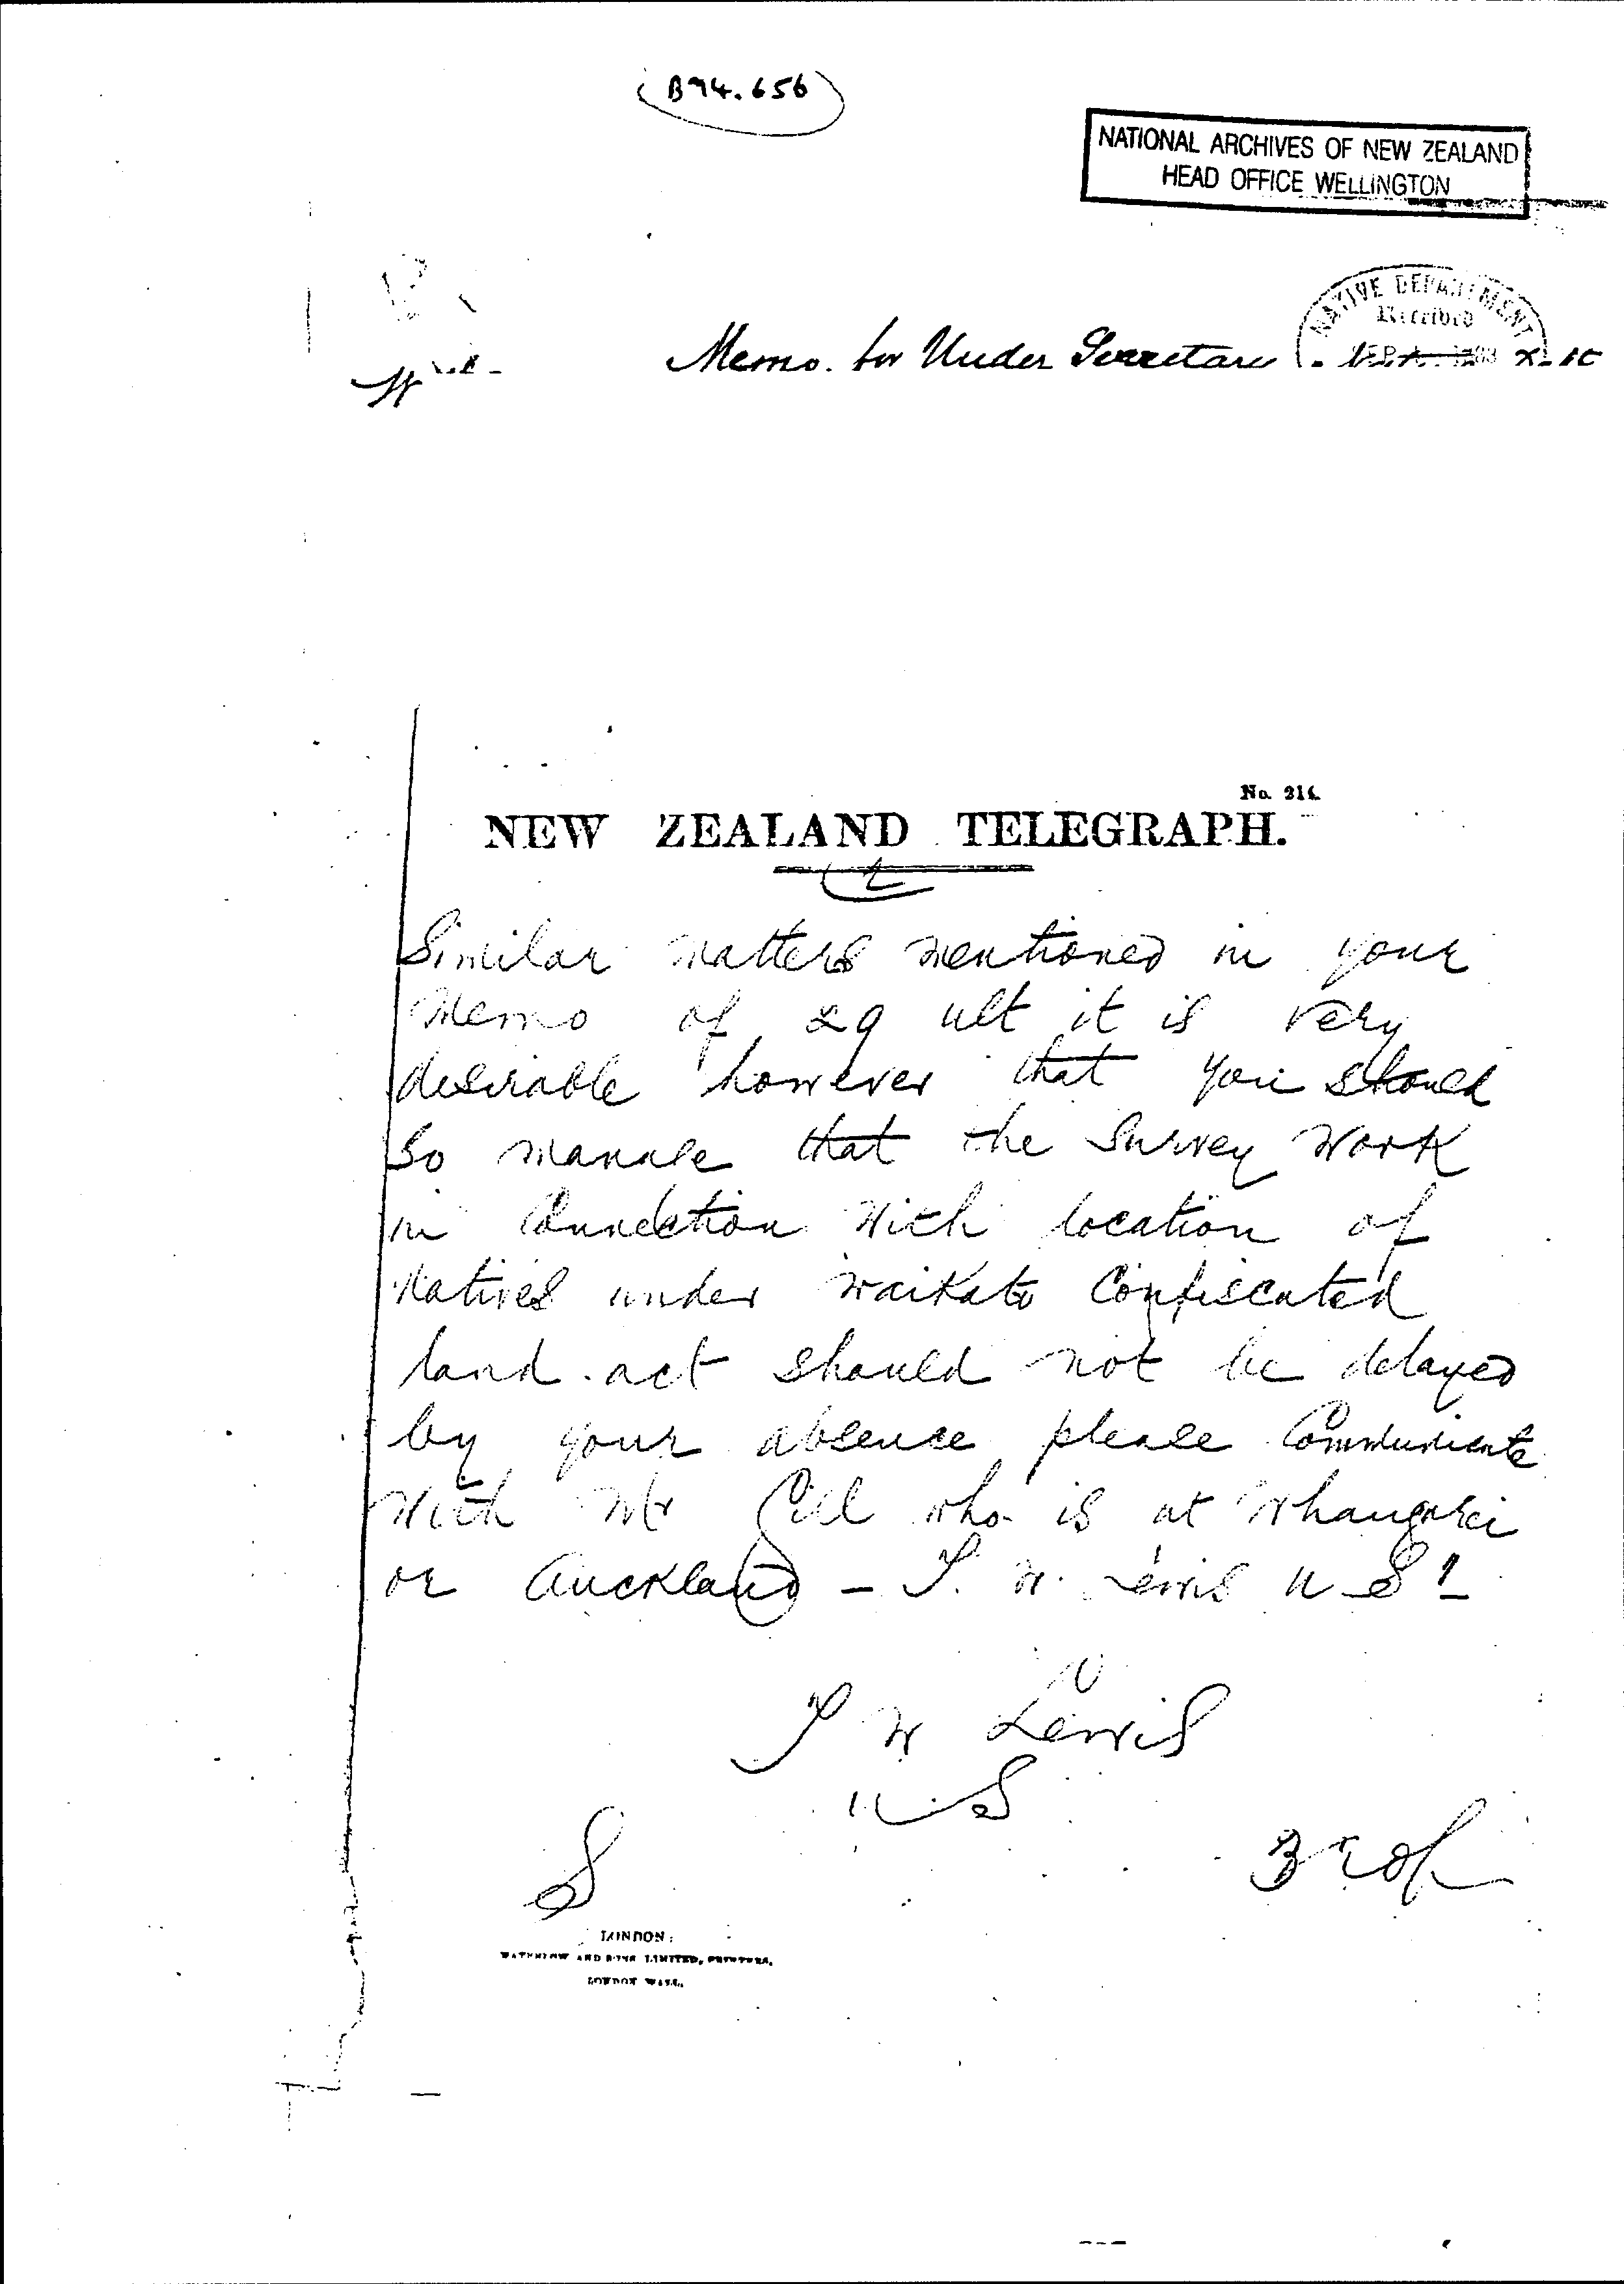 B94.656
NATIONAL ARCHIVES OF NEW ZEALAND
HEAD OFFICE WELLINGTON
NATIVE DEPARTMENT
Received
Memo. for Under Secretary
No. 314.
NEW ZEALAND TELEGRAPH.
Similar matters mentioned in your
Memo of 29 ult it is very
desirable however that you should
So manage that the Survey Work
in Connection With location of
Natives under Waikato Confiscated
land act should not be delayed
by your absence please Communicate
With Mr Gill who is at Whangarei
or Auckland - T. W. Lewis U S
T W Lewis
U S
LONDON:
WATERLOW AND SONS LIMITED, PRINTERS,
LONDON WALL.